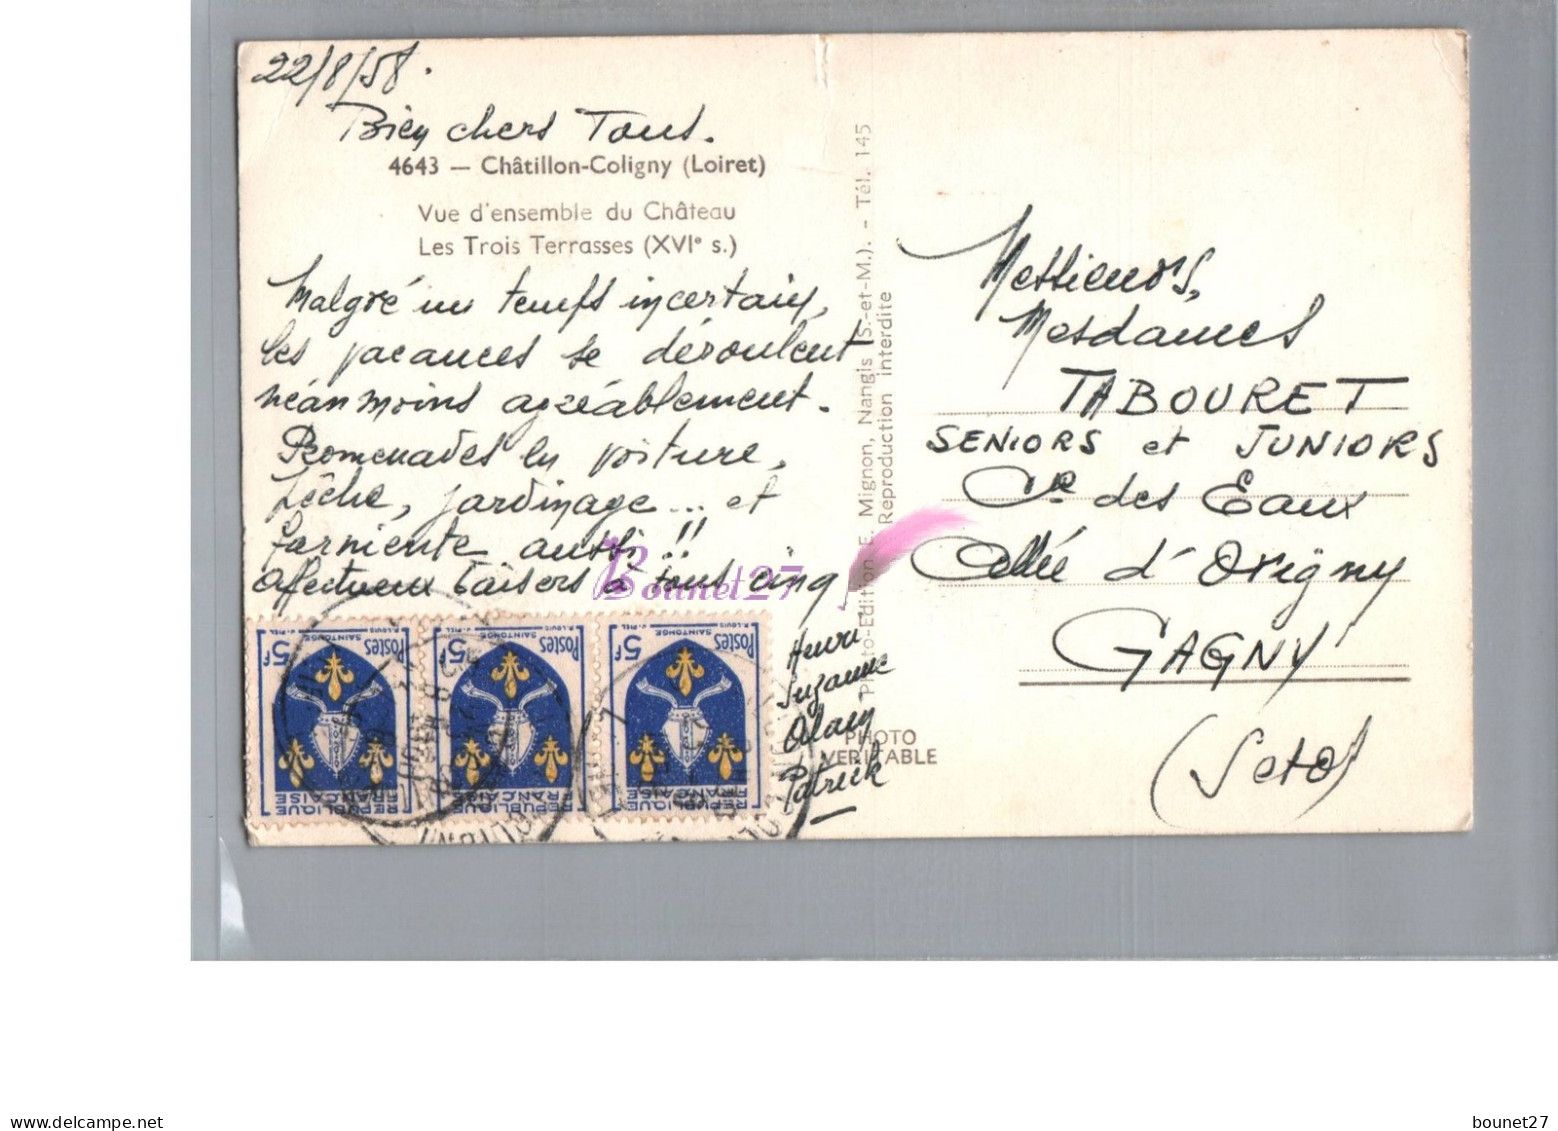 22/8/58.
Bien chers Tous.
4643 — Châtillon-Coligny (Loiret)
Vue d'ensemble du Château
Les Trois Terrasses (XVIe s.)
Malgré un temps incertain,
les vacances se déroulent
néanmoins agréablement.
Promenades en voiture,
Pêche, jardinage... et
farniente aussi !!
Affectueux baisers à tous cinq
Henri
Suzanne
Alain
Patrick
Photo-Edition E. Mignon, Nangis (S.-et-M.). - Tél. 145
Reproduction interdite
PHOTO
VERITABLE
Messieurs,
Mesdames
TABOURET
SENIORS et JUNIORS
Ce des Eaux
Allée d'Origny
GAGNY
(S et O)
Postes
5F
R.LOUIS
SAINTONGE
REPUBLIQUE
FRANÇAISE
Postes
5F
R.LOUIS
SAINTONGE
REPUBLIQUE
FRANÇAISE
Postes
5F
SAINTONGE
REPUBLIQUE
FRANÇAISE
Bounet27
www.delcampe.net
bounet27